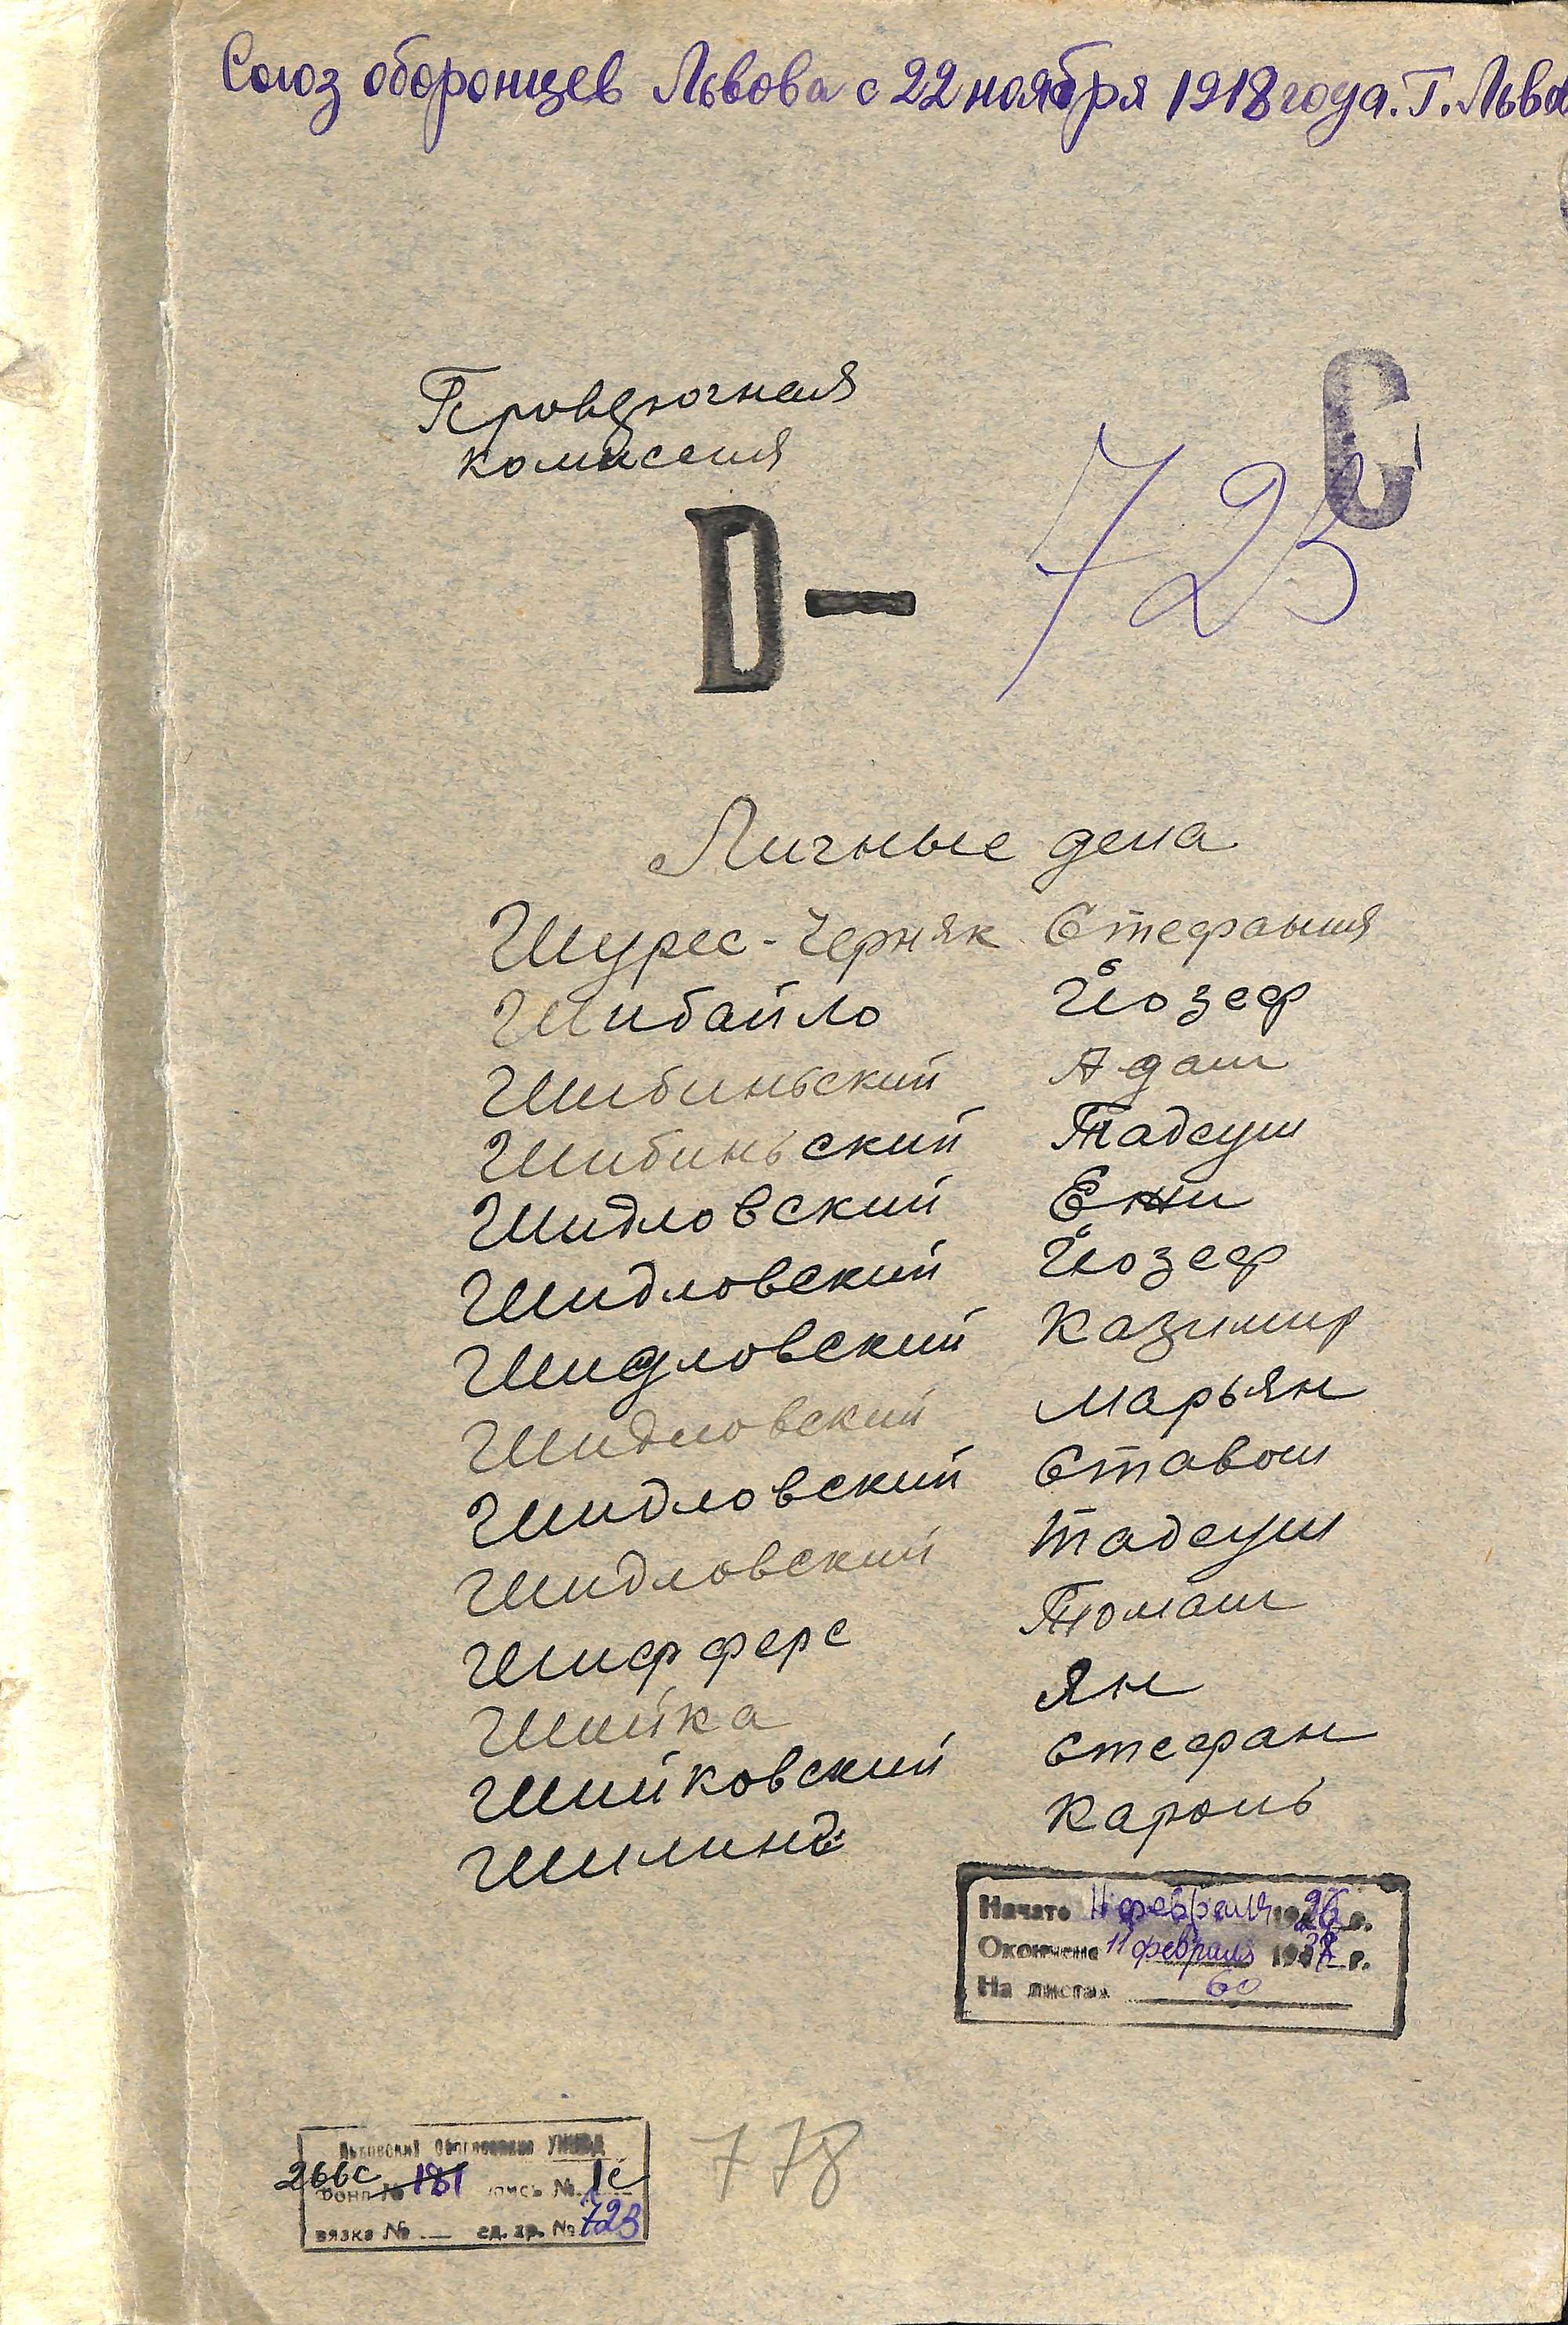 Союз оборонцев Львова с 22 ноября 1918 года. Г. Львов
Проверочная
комиссия
С
D — 723
Личные дела
Шурес-Черняк Стефания
Шибайло Йозеф
Шибиньский Адам
Шибиньский Тадеуш
Шидловский Ежи
Шидловский Йозеф
Шидловский Казимир
Шидловский Марьян
Шидловский Ставош
Шидловский Тадеуш
Шифферс Томаш
Шийка Ян
Шийковский Стефан
Шилинг Кароль
Начато 11 февраля 1926 г.
Окончено 11 февраля 19 г.
На листах 60
Львовский Облгосархив УМВД
266с Фонд № 181 опись № 1с
вязка № — ед. хр. № 723
778